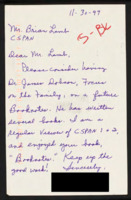 11-30-97
Mr. Brian Lamb
CSPAN
Dear Mr. Lamb,
Please consider having
Dr. James Dobson, Focus
on the Family, on a future
Booknotes. He has written
several books. I am a
regular viewer of CSPAN 1 + 2,
and enjoyed your book,
"Booknotes." Keep up the
good work! Sincerely,